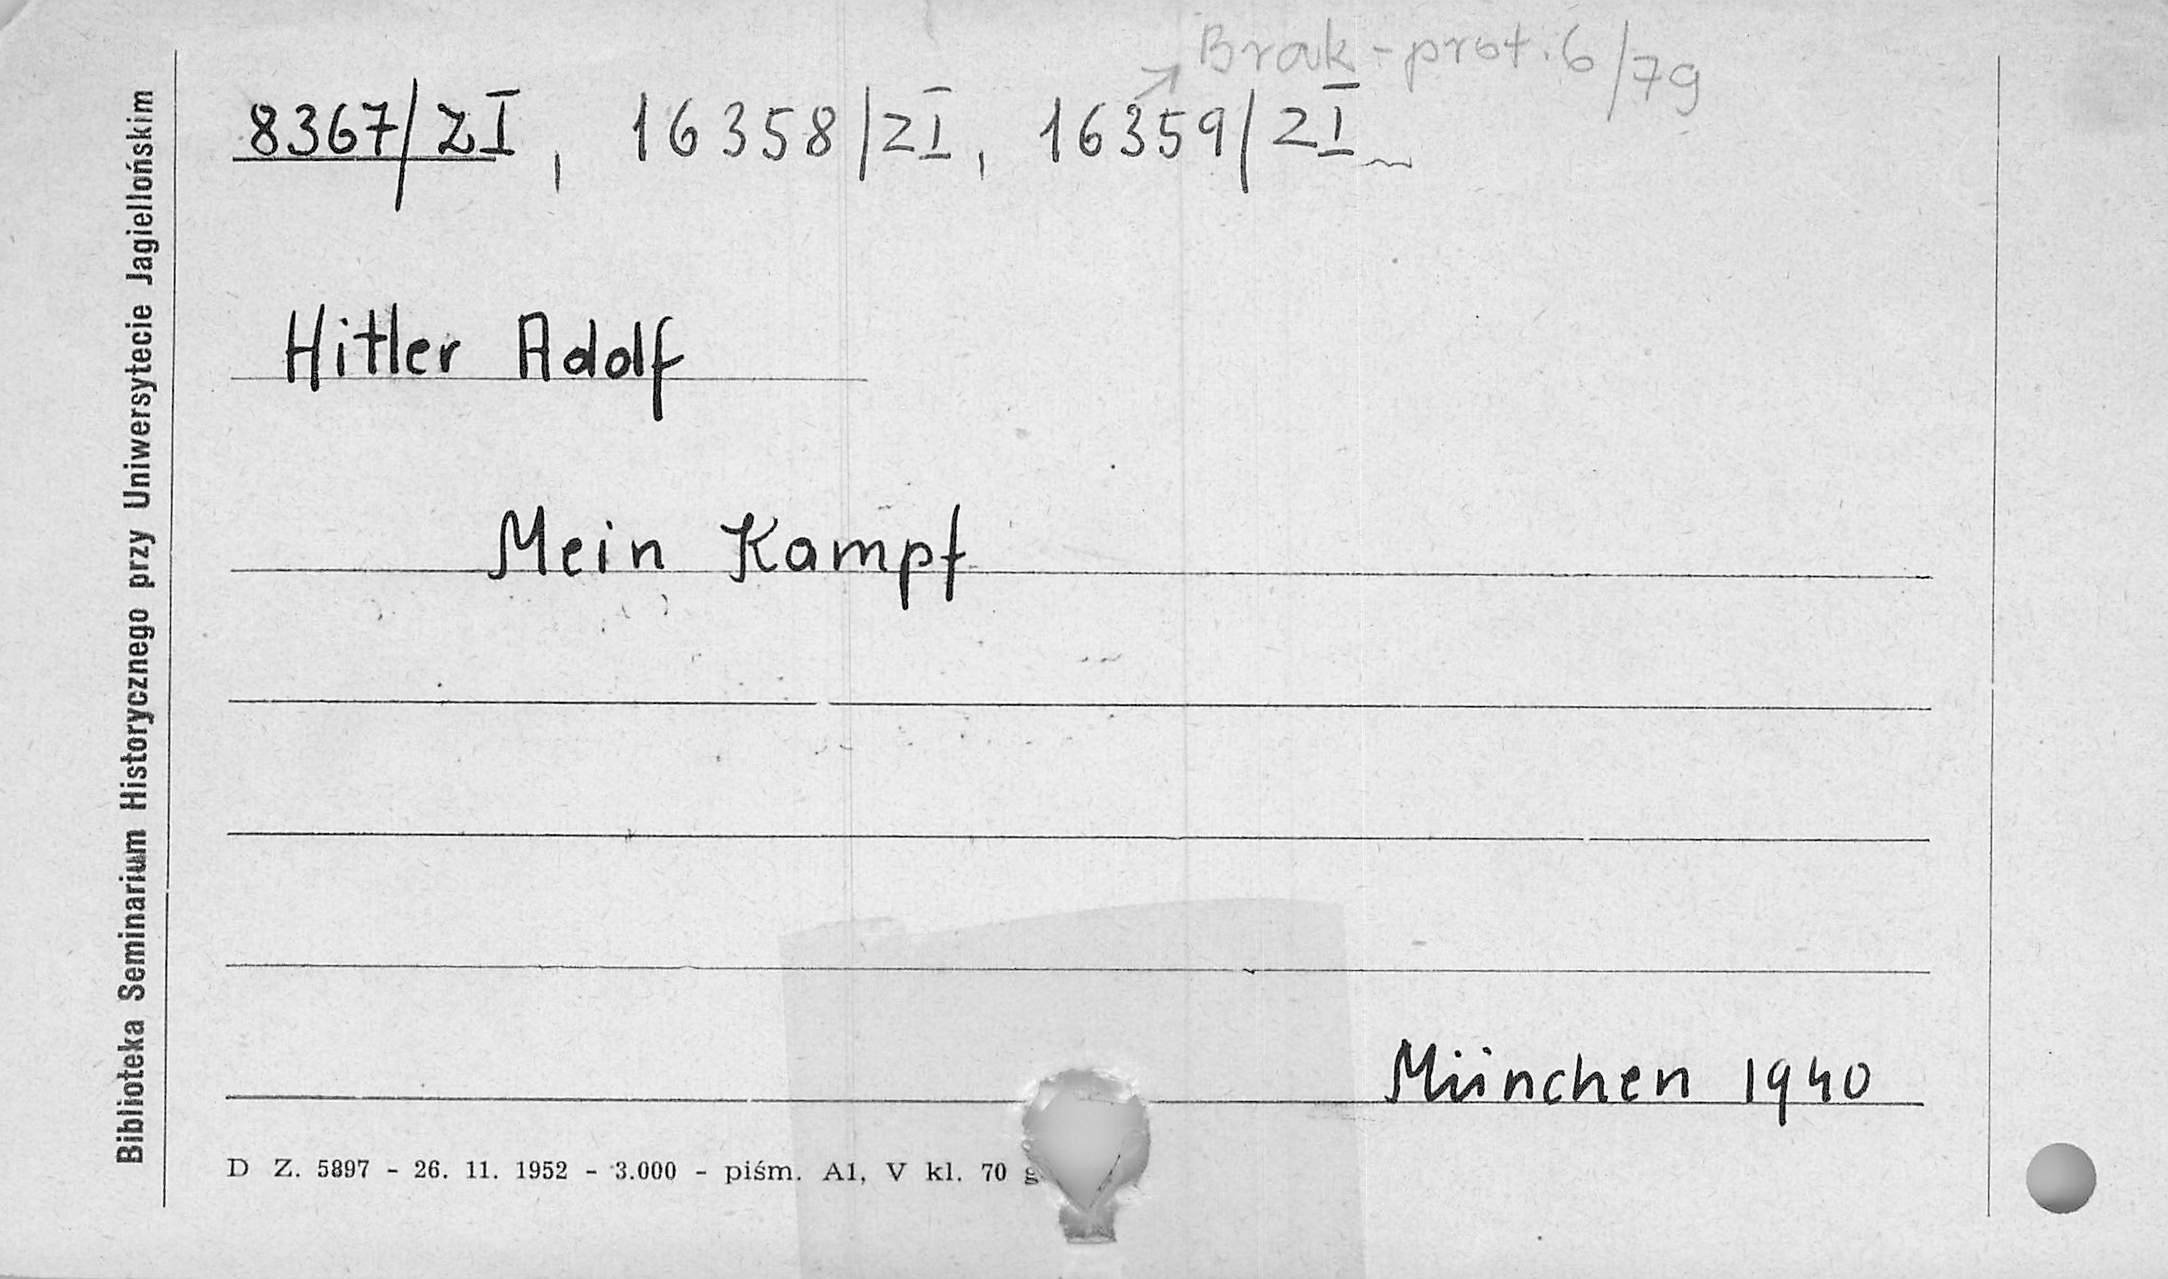 Brak - prot. 6/79
8367/ZI, 16358/ZI, 16359/ZI
Hitler Adolf
Mein Kampf
München 1940
D Z. 5897 - 26. 11. 1952 - 3.000 - piśm. A1, V kl. 70 g
Biblioteka Seminarium Historycznego przy Uniwersytecie Jagiellońskim